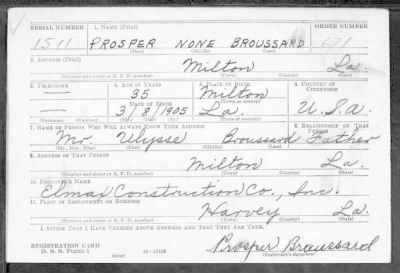 SERIAL NUMBER 1. NAME (Print) ORDER NUMBER
1511 PROSPER NONE BROUSSARD
(First) (Middle) (Last)
2. ADDRESS (Print)
Milton La.
(Number and street or R. F. D. number) (Town) (County) (State)
3. TELEPHONE 4. AGE IN YEARS 5. PLACE OF BIRTH 6. COUNTRY OF CITIZENSHIP
— 35 Milton
DATE OF BIRTH (Town or county)
— 3/9/1905 La. U.S.a.
7. NAME OF PERSON WHO WILL ALWAYS KNOW YOUR ADDRESS 8. RELATIONSHIP OF THAT PERSON
Mr. Ulysse Broussard Father
(Mr., Mrs., Miss) (First) (Middle) (Last)
9. ADDRESS OF THAT PERSON
Milton La.
(Number and street or R. F. D. number) (Town) (County) (State)
10. EMPLOYER'S NAME
Elmar Construction Co., Inc.
11. PLACE OF EMPLOYMENT OR BUSINESS
Harvey La.
(Number and street or R. F. D. number) (Town) (County) (State)
I AFFIRM THAT I HAVE VERIFIED ABOVE ANSWERS AND THAT THEY ARE TRUE.
REGISTRATION CARD
D. S. S. FORM 1 Prosper Broussard
(over) (Registrant's signature)